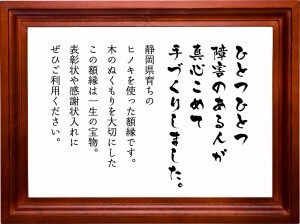 ひとつひとつ
障害のある人が
真心こめて
手づくりしました。
静岡県育ちの
ヒノキを使った額縁です。
木のぬくもりを大切にした
この額縁は一生の宝物。
表彰状や感謝状入れに
ぜひご利用ください。